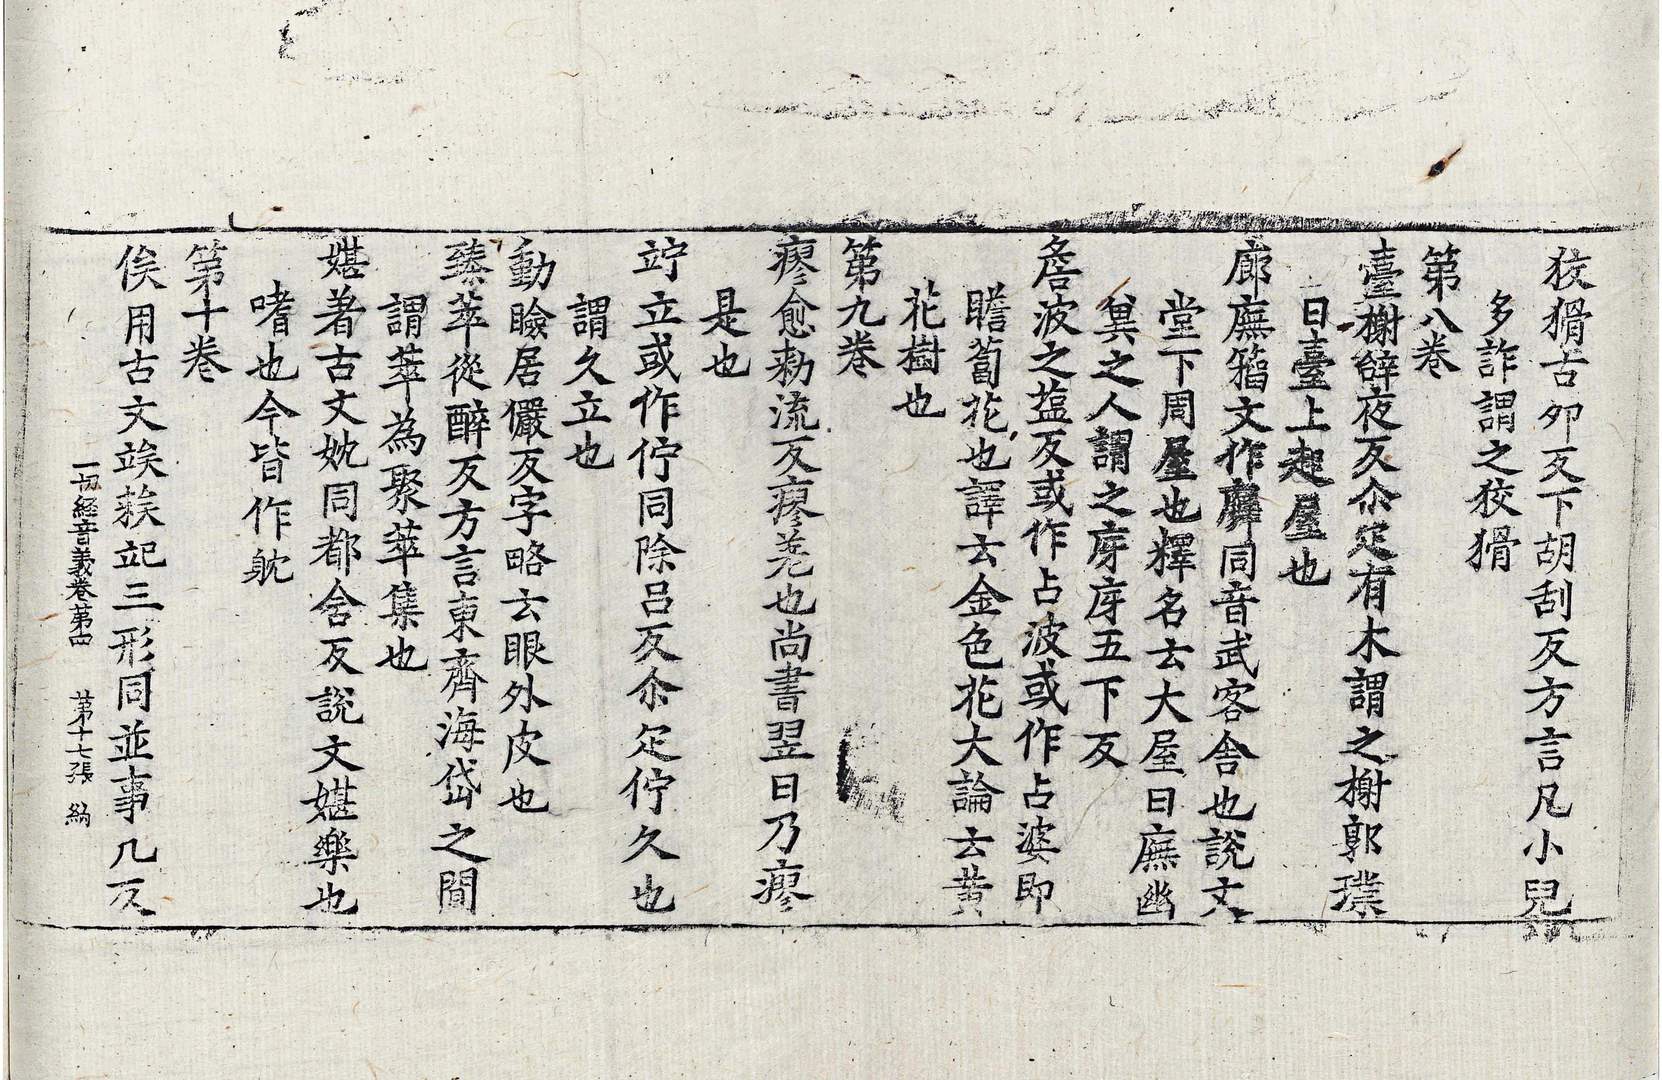 狡猾古夘反下胡刮反方言凡小兒
多詐謂之狡猾
第八卷
臺榭辝夜反尒疋有木謂之榭郭璞
曰臺上起屋也
廊廡籀文作廡同音武客舍也說文
堂下周屋也釋名云大屋曰廡幽
兾之人謂之庌庌五下反
詹波之塩反或作占波或作占婆即
瞻蔔花也譯云金色花大論云黄
花樹也
第九卷
瘳愈勑流反瘳差也尚書翌日乃瘳
是也
竚立或作佇同除呂反尒疋佇久也
謂久立也
動瞼居儼反字略云眼外皮也
臻萃從醉反方言東齊海岱之間
謂萃為聚萃集也
媅著古文妉同都含反說文媅樂也
嗜也今皆作躭
第十卷
俟用古文竢𥏳䇃三形同並事几反
一切經音義卷第四 第十七張 納